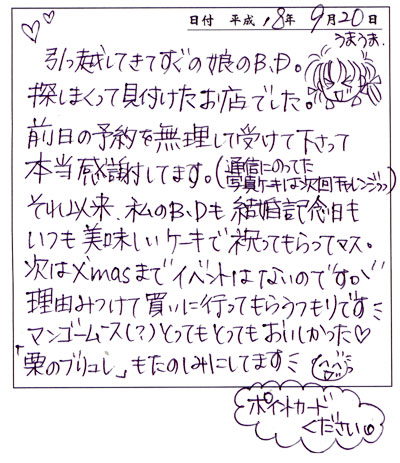 日付 平成 18年 9月 20日
うまうま。
引っ越してきてすぐの娘のB.D。
探しまくって見付けたお店でした。
前日の予約を無理して受けて下さって
本当感謝してます。(通信にのってた
写真ケーキは次回チャレンジッ)
それ以来、私のB.Dも結婚記念日も
いつも美味しいケーキで祝ってもらってマス。
次はX'masまでイベントはないのですが
理由みつけて買いに行ってもらうつもりです
マンゴームース(?)とってもとってもおいしかった♡
「栗のブリュレ」もたのしみにしてます
ポイントカード
ください。